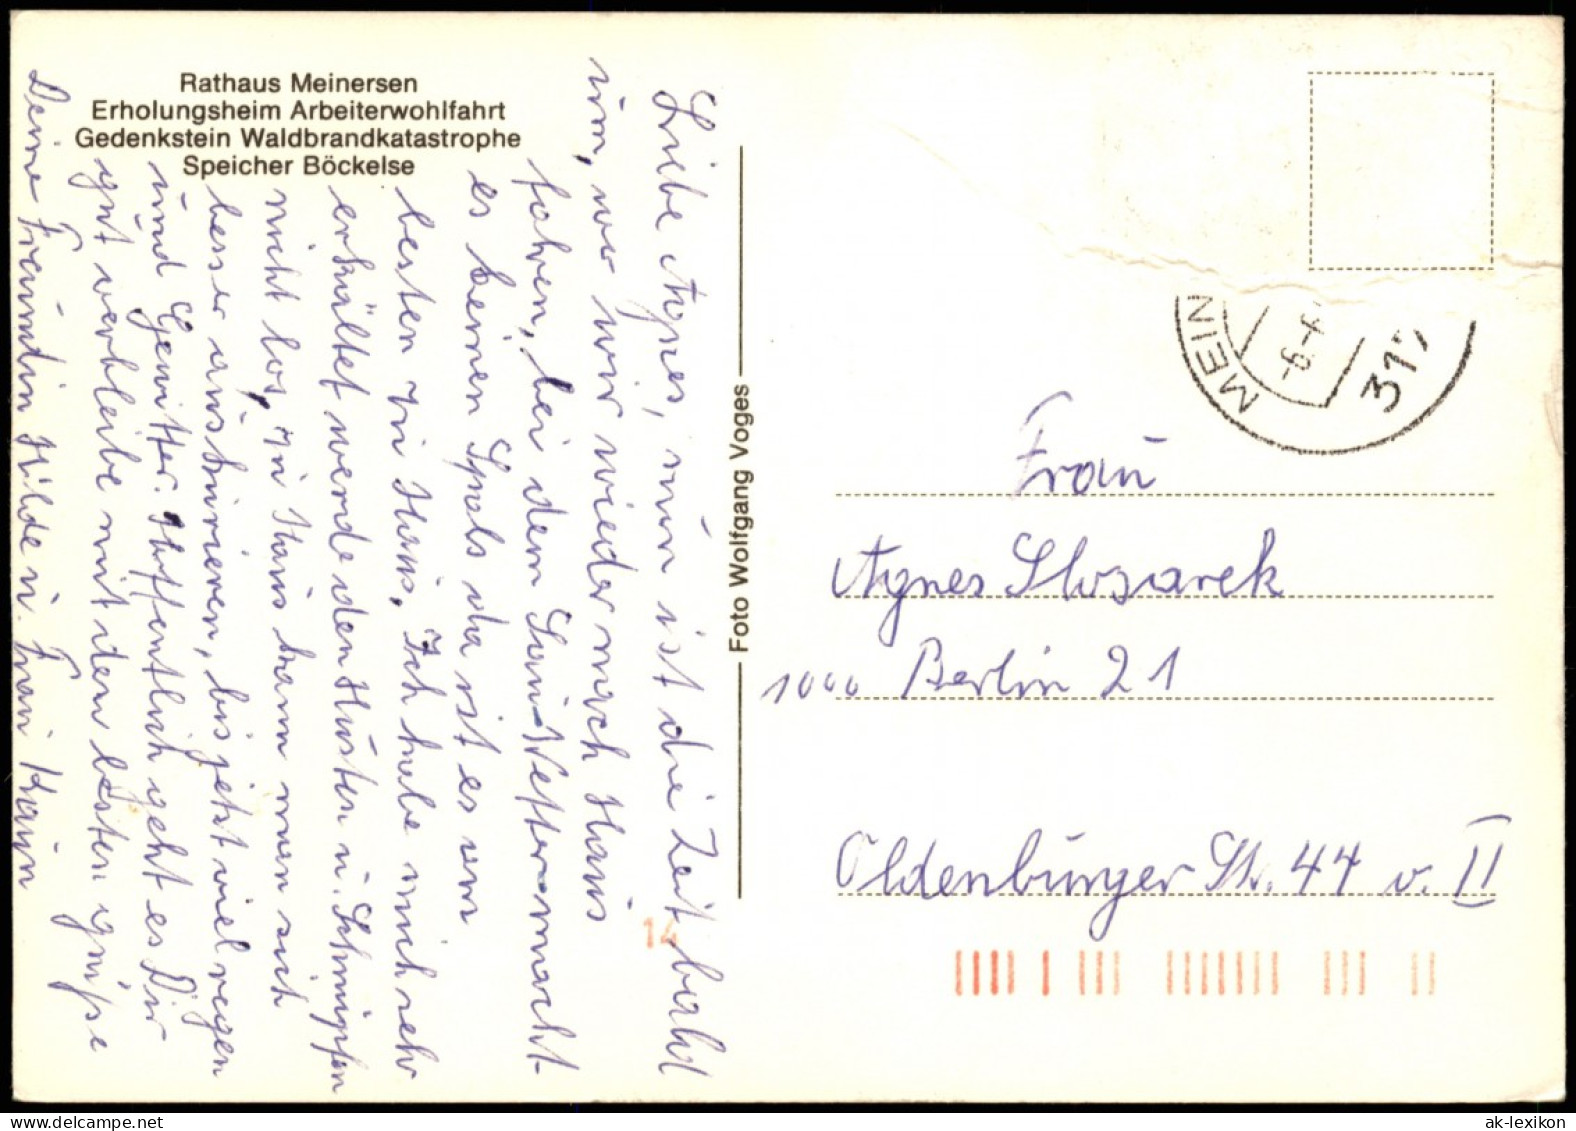 Rathaus Meinersen
Erholungsheim Arbeiterwohlfahrt
Gedenkstein Waldbrandkatastrophe
Speicher Böckelse
Liebe Agnes, nun ist die Zeit bald
um, wo wir wieder nach Haus
fahren, bei dem Sau-Wetter macht
es keinen Spals da ist es am
besten zu Haus. Ich habe mich sehr
erkältet werde den Husten u. Schnupfen
nicht los, zu Haus kann man sich
besser auskurieren, bis jetzt viel regen
und Gewitter. Hoffentlich geht es Dir
gut verbleibe mit den besten grüße
Deine Freundin Hilde u. Frau Kain
Foto Wolfgang Voges
MEIN
317
Frau
Agnes Slosarek
1000 Berlin 21
Oldenburger Str. 44 v. II
14
ak-lexikon